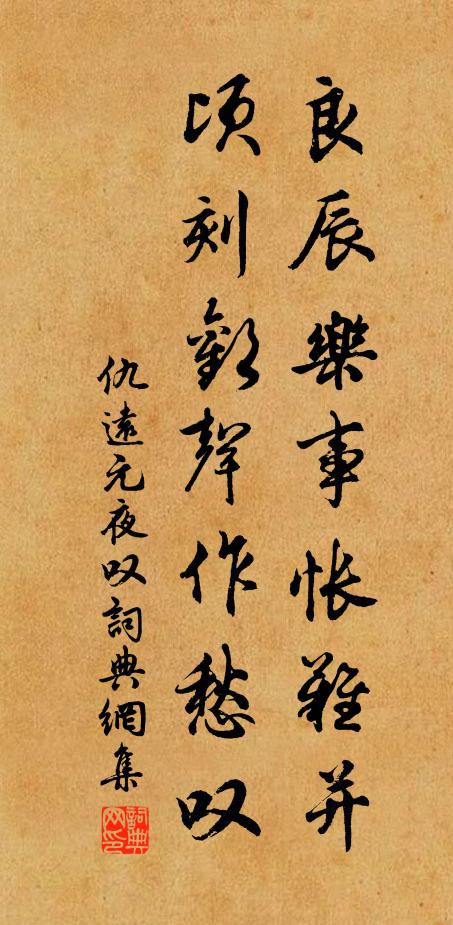 良辰樂事悵難并
頃刻歡聲作愁叹
仇遠元夜叹詞典網集
詞典网印